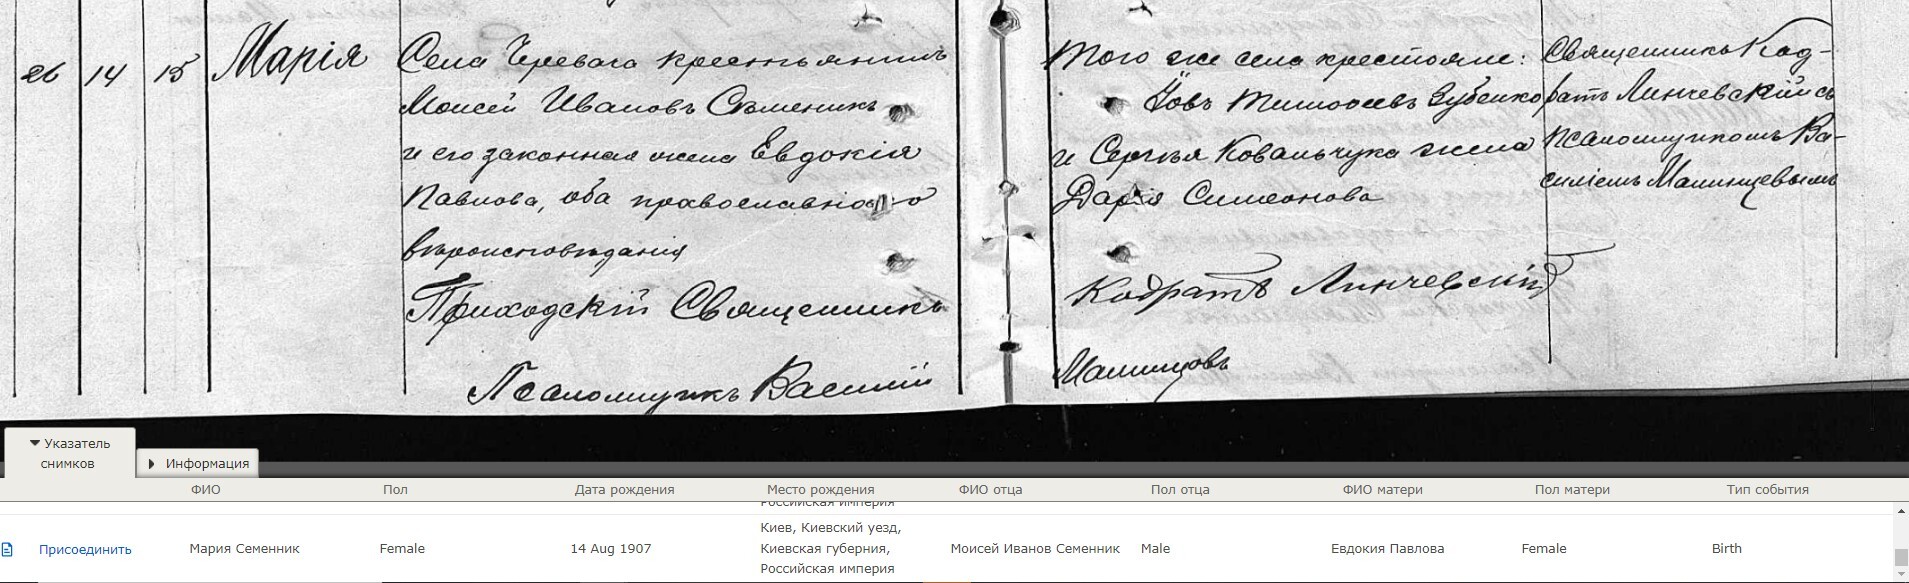 26 14 15 Марія
Села Черевача крестьянинъ
Моисей Ивановъ Сѣменикъ
и его законная жена Евдокія
Павлова, оба православнаго
вѣроисповѣданія
Приходскій Священникъ
Псаломщикъ Василій
Того же села крестьяне:
Іовъ Тимофеевъ Зубенко
и Сергѣя Ковальчука жена
Дарія Симеонова
Кодратъ Линчевскій
Малинцовъ
Священникъ Код-
ратъ Линчевскій съ
псаломщикомъ Ва-
силіемъ Малинцевымъ
Указатель
снимков
Информация
ФИО Пол Дата рождения Место рождения ФИО отца Пол отца ФИО матери Пол матери Тип события
Российская империя
Присоединить Мария Семенник Female 14 Aug 1907 Киев, Киевский уезд,
Киевская губерния,
Российская империя
Моисей Иванов Семенник Male Евдокия Павлова Female Birth